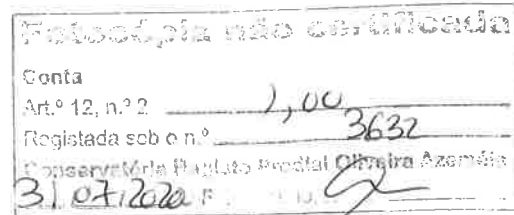 Fotocópia não certificada
Conta
Art.º 12, n.º 2 1,00
Registada sob o n.º 3632
Conservatória Registo Predial Oliveira Azeméis
31.07.2020